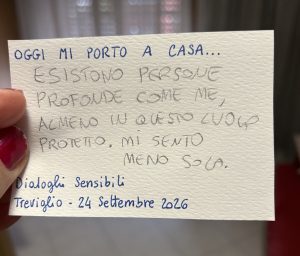 OGGI MI PORTO A CASA...
ESISTONO PERSONE
PROFONDE COME ME,
ALMENO IN QUESTO LUOGO
PROTETTO. MI SENTO
MENO SOLA.
Dialoghi Sensibili
Treviglio - 24 Settembre 2026